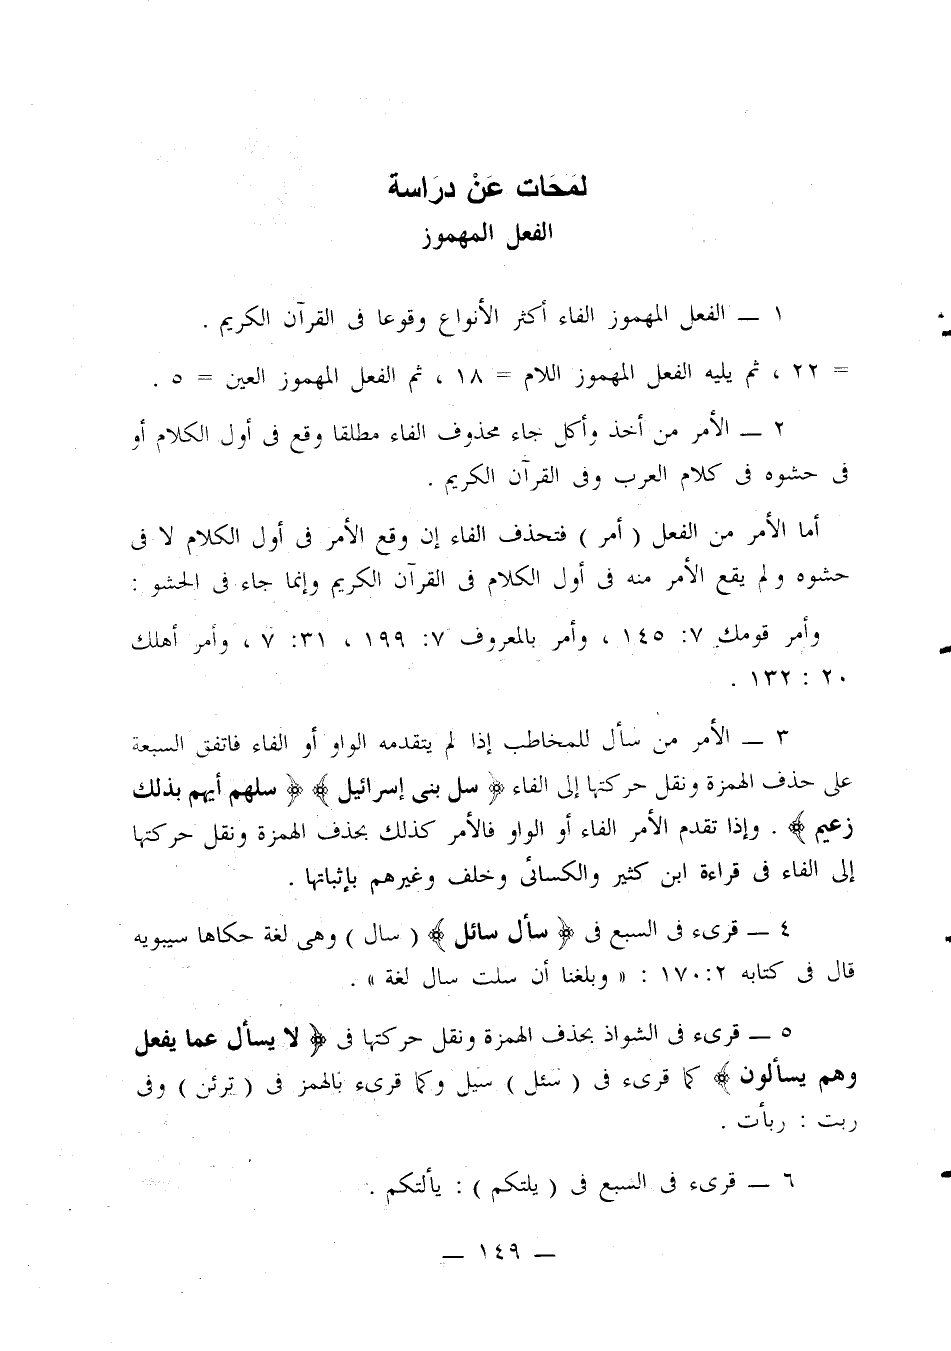 لمَحَات عَنْ درَاسة
الفعل المهموز
١ — الفعل المهموز الفاء أكثر الأنواع وقوعا فى القرآن الكريم .
= ٢٢ ، ثم يليه الفعل المهموز اللام = ١٨ ، ثم الفعل المهموز العين = ٥ .
٢ — الأمر من أخذ وأكل جاء محذوف الفاء مطلقا وقع فى أول الكلام أو
فى حشوه فى كلام العرب وفى القرآن الكريم .
أما الأمر من الفعل ( أمر ) فتحذف الفاء إن وقع الأمر فى أول الكلام لا فى
حشوه ولم يقع الأمر منه فى أول الكلام فى القرآن الكريم وإنما جاء فى الحشو :
وأمر قومك ٧: ١٤٥ ، وأمر بالمعروف ٧: ١٩٩ ، ٣١: ٧ ، وأمر أهلك
٢٠ : ١٣٢ .
٣ — الأمر من سأل للمخاطب إذا لم يتقدمه الواو أو الفاء فاتفق السبعة
على حذف الهمزة ونقل حركتها إلى الفاء ﴿ سل بنى إسرائيل ﴾ ﴿ سلهم أيهم بذلك
زعيم ﴾ . وإذا تقدم الأمر الفاء أو الواو فالأمر كذلك بحذف الهمزة ونقل حركتها
إلى الفاء فى قراءة ابن كثير والكسائى وخلف وغيرهم بإثباتها .
٤ — قرىء فى السبع فى ﴿ سأل سائل ﴾ ( سال ) وهى لغة حكاها سيبويه
قال فى كتابه ١٧٠:٢ : « وبلغنا أن سلت سال لغة » .
٥ — قرىء فى الشواذ بحذف الهمزة ونقل حركتها فى ﴿ لا يسأل عما يفعل
وهم يسألون ﴾ كما قرىء فى ( سئل ) سيل وكما قرىء بالهمز فى ( ترئن ) وفى
ربت : ربأت .
٦ — قرىء فى السبع فى ( يلتكم ) : يألتكم .
— ١٤٩ —